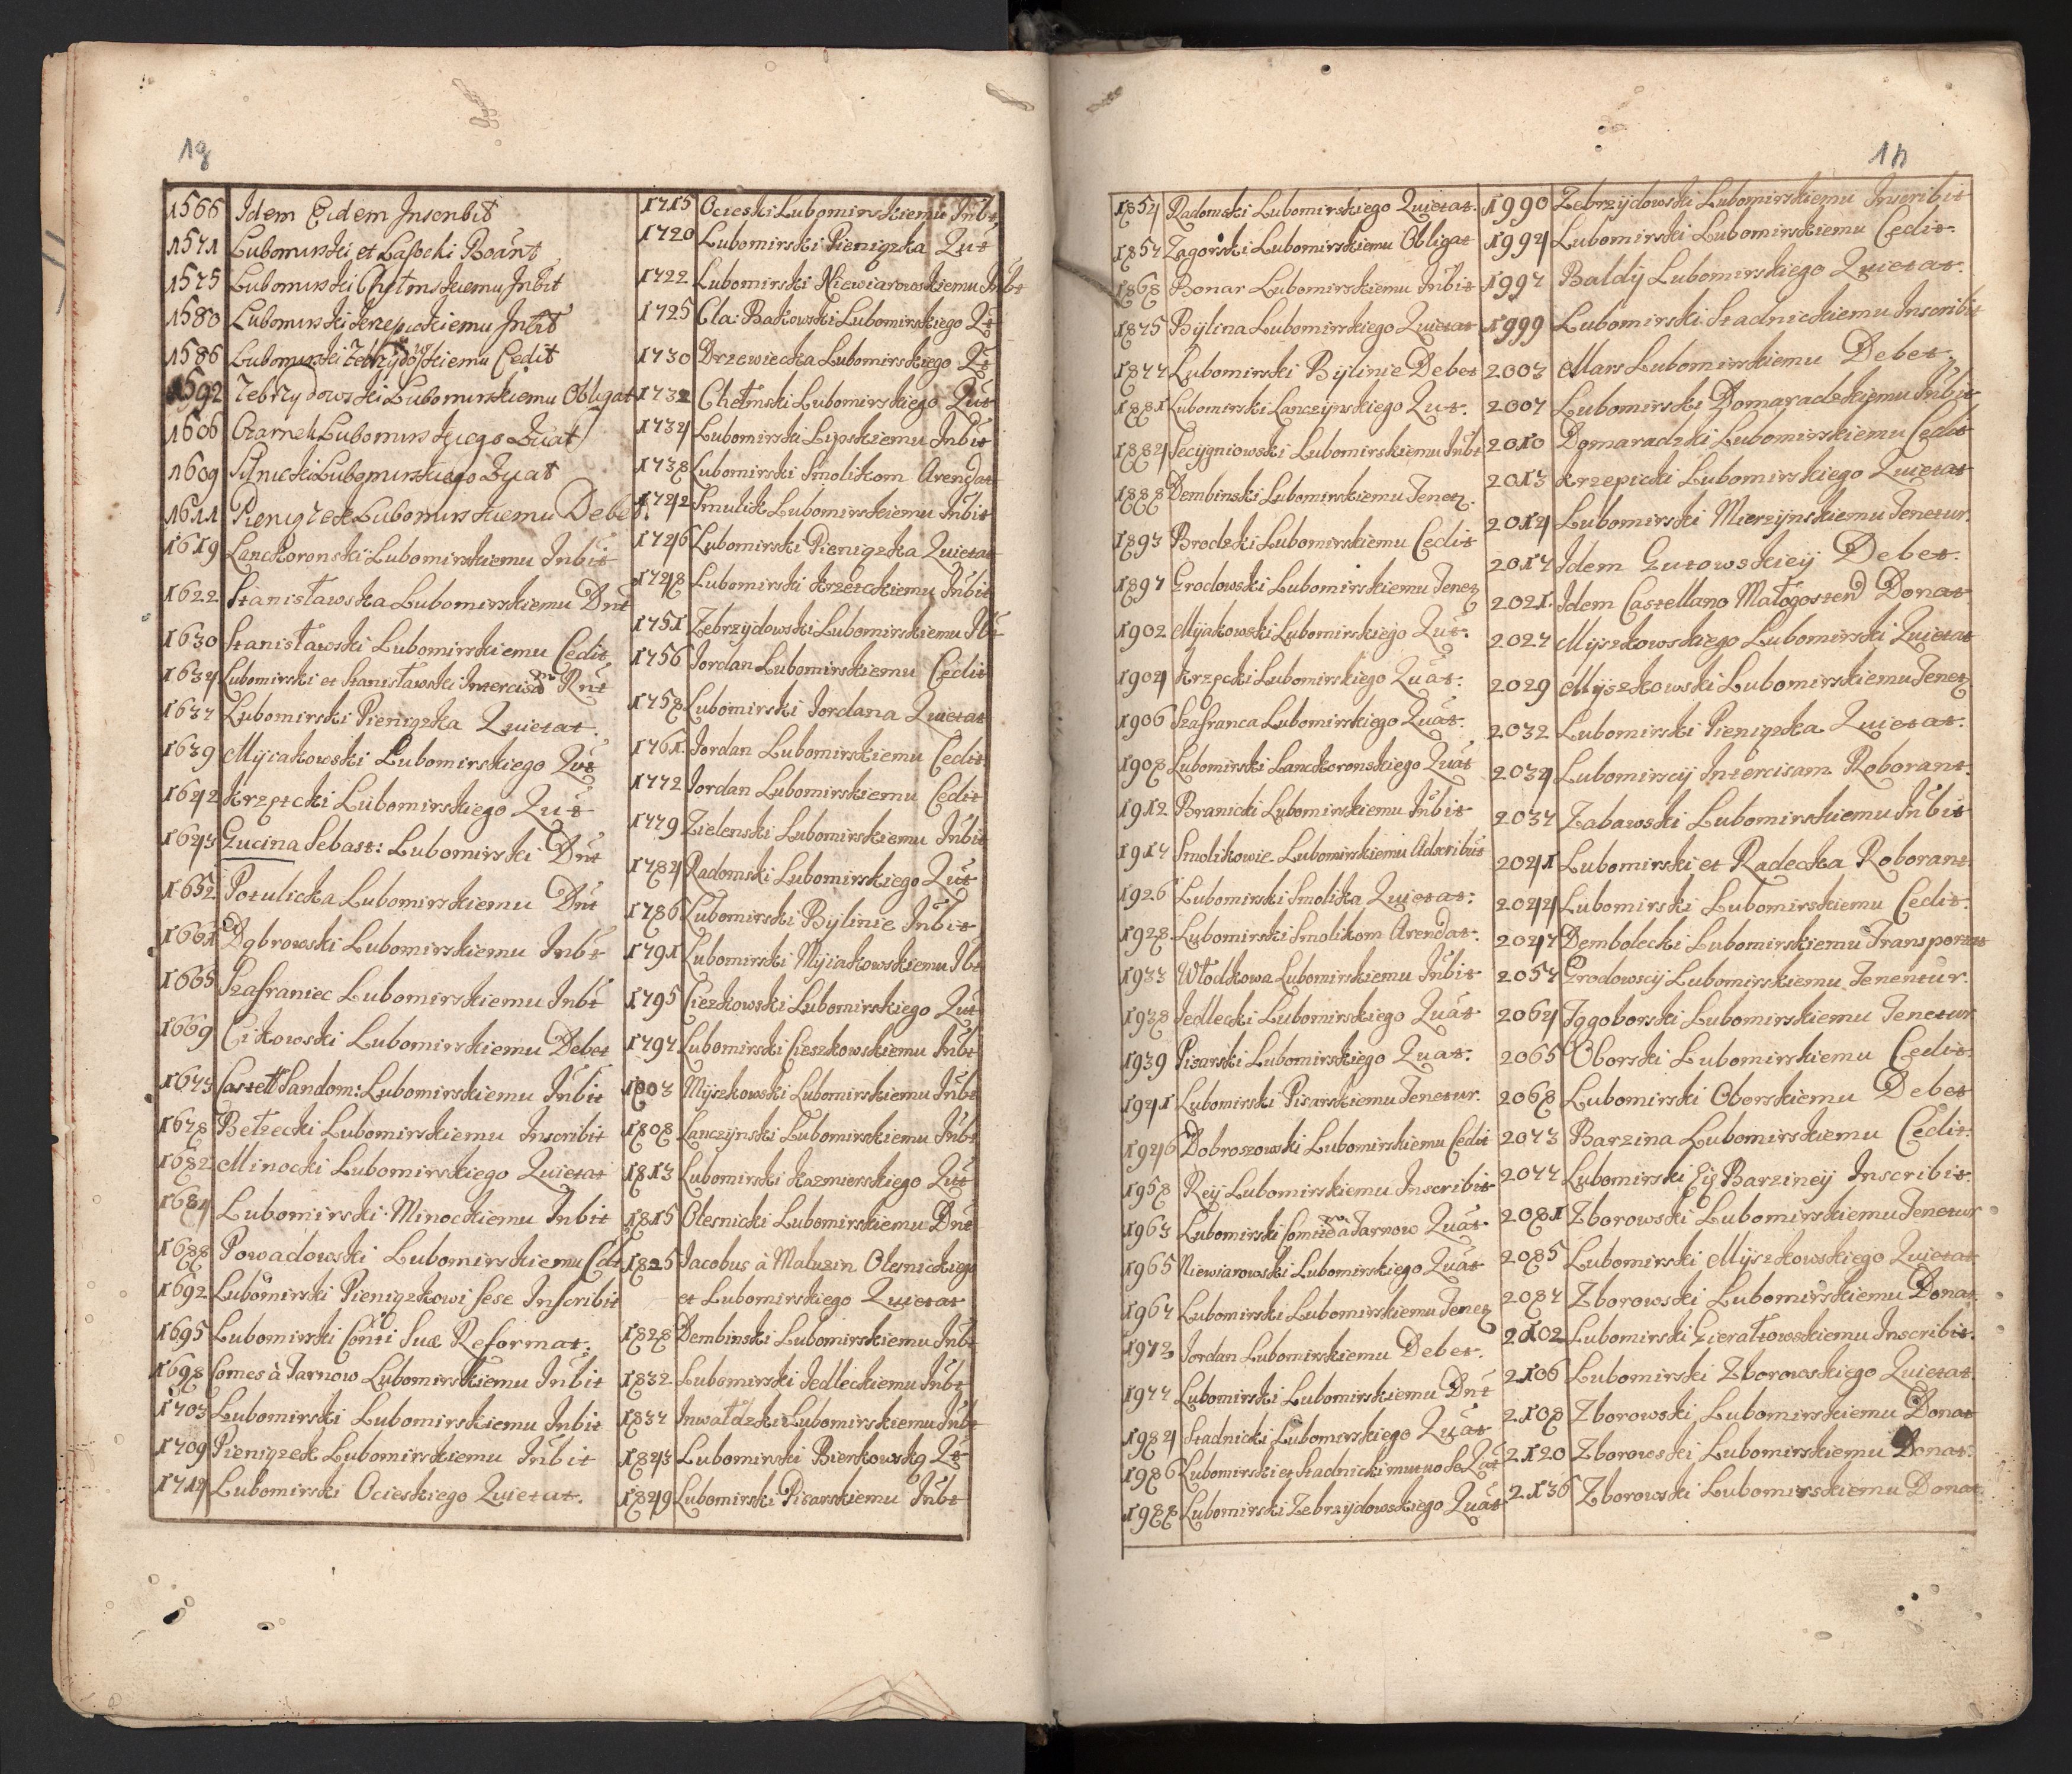 1g
1566 Idem Eidem Inscribit
1571 Lubomirski et Lasocki Roānt
1575 Lubomirski Chełmskiemu Inbit
1580 Lubomirski krzepickiemu Inbit
1586 Lubomirski Zebrzydowskiemu Cedit
1592 Zebrzydowski Lubomirskiemu Obligat
1606 Czarnek Lubomirskiego Quāt
1609 Lubomirskiego Quat
1611 Pieniązek Lubomirskiemu Debet
1619 Lanckoronski Lubomirskiemu Inbit
1622 Stanisławska Lubomirskiemu Dnt
1630 Stanisławski Lubomirskiemu Cedit
1634 Lubomirski et Stanisławski Intercisā Rnt
1637 Lubomirski Pieniązka Quietat.
1639 Myiakowski Lubomirskiego Qut
1642 Krzptcki Lubomirskiego Qut
1643 Gucina Sebast: Lubomirski Dnt
1652 Potulicka Lubomirskiemu Dnt
1661 Dąbrowski Lubomirskiemu Inbt
1665 Szafraniec Lubomirskiemu Inbt
1669 Cikowski Lubomirskiemu Debet
1673 Castell Sandom: Lubomirskiemu Inbit
1678 Bełzecki Lubomirskiemu Inscribit
1682 Minocki Lubomirskiego Quietat
1684 Lubomirski Minockiemu Inbit
1688 Powadowski Lubomirskiemu Cdt
1692 Lubomirski Pieniązkowi sese Inscribit
1695 Lubomirski Conti Suæ Reformat.
1698 Comes à Tarnow Lubomirskiemu Inbit
1703 Lubomirski Lubomirskiemu Inbit
1709 Pieniązek Lubomirskiemu Inbit
1714 Lubomirski Ocieskiego Quietat.
1715 Ocieski Lubomirskiemu Inbt
1720 Lubomirski Pieniązka Qut
1722 Lubomirski Niewiarowskiemu Inbt
1725 Cla: Bakowski Lubomirskiego Qt
1730 Drzewiecka Lubomirskiego Qt
1732 Chełmski Lubomirskiego Qut
1734 Lubomirski Lipskiemu Inbit
1738 Lubomirski Smolikom Arendat
1742 Smulik Lubomirskiemu Inbit
1746 Lubomirski Pieniązka Quietat
1748 Lubomirski krzetckiemu Inbit
1751 Zebrzydowski Lubomirskiemu Ibt
1756 Jordan Lubomirskiemu Cedit
1758 Lubomirski Jordana Quietat
1761 Jordan Lubomirskiemu Cedit
1772 Jordan Lubomirskiemu Cedit
1779 Zielenski Lubomirskiemu Inbit
1784 Radomski Lubomirskiego Qut
1786 Lubomirski Bylinie Inbit
1791 Lubomirski Myiakowskiemu Ibt
1795 Cieszkowski Lubomirskiego Qut
1797 Lubomirski Cieszkowskiemu Inbt
1803 Myszkowski Lubomirskiemu Inbt
1808 Lanczynski Lubomirskiemu Inbt
1813 Lubomirski kazmierskiego Qut
1815 Olesnicki Lubomirskiemu Dnt
1825 Jacobus à Maluzin Olesnickiego
et Lubomirskiego Quietat
1828 Dembinski Lubomirskiemu Inbt
1832 Lubomirski Jedleckiemu Inbt
1837 Inwałdzki Lubomirskiemu Inbt
1843 Lubomirski Bierkowską Qt
1849 Lubomirski Pisarskiemu Inbt
1h
1854 Radomski Lubomirskiego Quietat.
1857 Zagorski Lubomirskiemu Obligat
1868 Bonar Lubomirskiemu Inbit
1875 Bylina Lubomirskiego Quietat
1877 Lubomirski Bylinie Debet
1881 Lubomirski Lanczynskiego Qut.
1884 Secygniowski Lubomirskiemu Inbt
1888 Dembinski Lubomirskiemu Tenet.
1893 Brodzki Lubomirskiemu Cedit
1897 Grodowski Lubomirskiemu Tenet
1902 Myiakowski Lubomirskiego Qut.
1904 krzpcki Lubomirskiego Quāt.
1906 Szafranca Lubomirskiego Quāt.
1908 Lubomirski Lanckoronskiego Quāt
1912 Branicki Lubomirskiemu Inbit
1917 Smolikowie Lubomirskiemu Adscribūt
1926 Lubomirski Smolika Quietat:
1928 Lubomirski Smolikom Arendat.
1933 Włodkowa Lubomirskiemu Inbit
1938 Jedlecki Lubomirskiego Quāt
1939 Pisarski Lubomirskiego Quat.
1941 Lubomirski Pisarskiemu Tenetur.
1946 Dobroszowski Lubomirskiemu Cedit
1958 Rey Lubomirskiemu Inscribit
1963 Lubomirski Comitē à Tarnow Quāt
1965 Niewiarowski Lubomirskiego Quāt
1967 Lubomirski Lubomirskiemu Tenet
1973 Jordan Lubomirskiemu Debet.
1977 Lubomirski Lubomirskiemu Dnt
1984 Stadnicki Lubomirskiego Quāt
1986 Lubomirski et Stadnicki mutuo se Qut
1988 Lubomirski Zebrzydowskiego Quāt
1990 Zebrzydowski Lubomirskiemu Inscribit
1994 Lubomirski Lubomirskiemu Cedit.
1997 Baldy Lubomirskiego Quietat.
1999 Lubomirski Stadnickiemu Inscribit
2003 Mars Lubomirskiemu Debet.
2007 Lubomirski Domaradzkiemu Inbit
2010 Domaradzki Lubomirskiemu Cedit
2013 krzepicki Lubomirskiego Quietat
2014 Lubomirski Mierzynskiemu Tenetur.
2017 Idem Gutowskiey Debet.
2021. Idem Castellano Małogosten Donat.
2027 Myszkowskiego Lubomirski Quietat
2029 Myszkowski Lubomirskiemu Tenet
2032 Lubomirski Pieniązka Quietat.
2034 Lubomirscy Intercisam Roborant.
2037 Zabawski Lubomirskiemu Inbit
2041 Lubomirski et Radecka Roborant.
2044 Lubomirski Lubomirskiemu Cedit.
2047 Dembolecki Lubomirskiemu Transportat
2057 Grodowscy Lubomirskiemu Tenentur.
2064 Jggoborski Lubomirskiemu Tenetur
2065 Oborski Lubomirskiemu Cedit.
2068 Lubomirski Oborskiemu Debet
2073 Barzina Lubomirskiemu Cedit.
2077 Lubomirski Eiż Barziney Inscribit.
2081 Zborowski Lubomirskiemu Tenetur
2085 Lubomirski Myszkowskiego Quietat.
2087 Zborowski Lubomirskiemu Donat.
2102 Lubomirski Gierałtowskiemu Inscribit.
2106 Lubomirski Zborowskiego Quietat.
2108 Zborowski Lubomirskiemu Donat
2120 Zborowski Lubomirskiemu Donat.
2136 Zborowski Lubomirskiemu Donat.